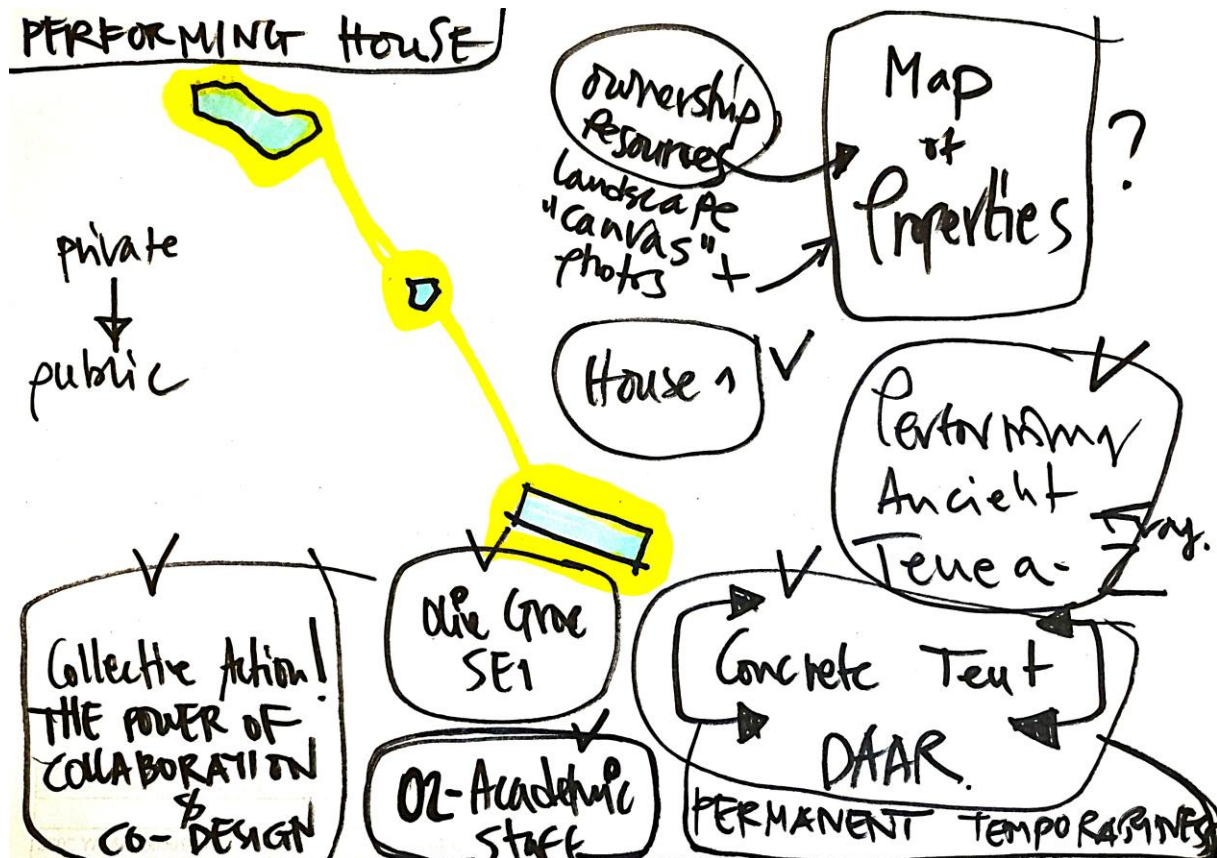 PERFORMING HOUSE
ownership
resources
landscape
"canvas"
photos +
Map
of
Properties
?
private
public
House 1
Performing
Ancient
Tenea-
Collective Action!
THE POWER OF
COLLABORATION
&
CO-DESIGN
Olive Grove
SE1
02-Academic
Staff
Concrete Tent
DAAR.
PERMANENT